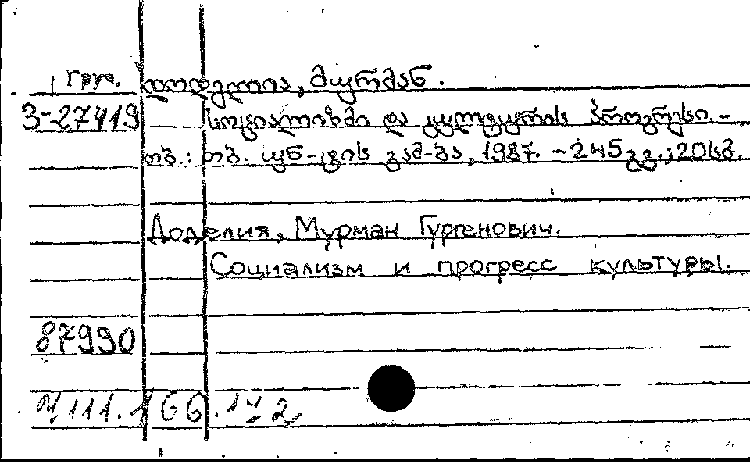 Груз. დოდელია, მურმან.
3-27419 სოციალიზმი და კულტურის პროგრესი. -
თბ.: თბ. უნ-ტის გამ-ბა, 1987. - 245გვ.; 20სმ.
Доделия, Мурман Гургенович.
Социализм и прогресс культуры.
87990
111.166.172